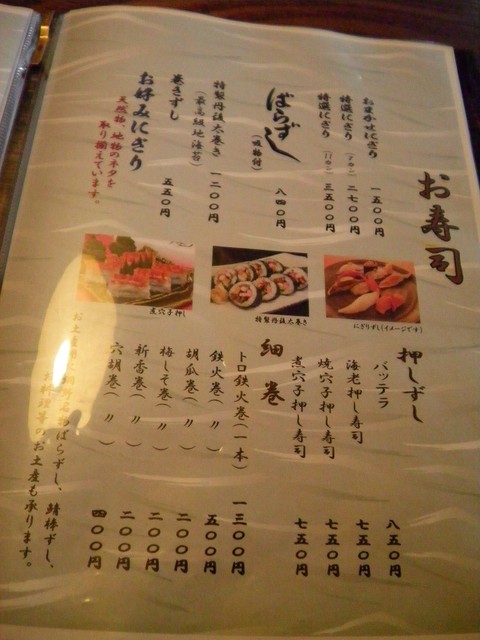 お寿司
おまかせにぎり 一五〇〇円
特選にぎり 二七〇〇円
特選にぎり 三五〇〇円
ばらずし（吸物付） 八四〇円
特製丹後太巻き 一二〇〇円
（最高級地海苔）
巻きずし 五五〇円
お好みにぎり
天然物 地物のネタを
取り揃えています。
にぎりずし(イメージです)
特製丹後太巻き
煮穴子押し
押しずし
バッテラ 八五〇円
海老押し寿司 七五〇円
焼穴子押し寿司 七五〇円
煮穴子押し寿司 七五〇円
細巻
トロ鉄火巻（一本） 一三〇〇円
鉄火巻（〃） 五〇〇円
胡瓜巻（〃） 二〇〇円
梅しそ巻（〃） 二〇〇円
新香巻（〃） 二〇〇円
穴胡巻（〃） 四〇〇円
ばらずし、鯖棒ずし、
のお土産も承ります。